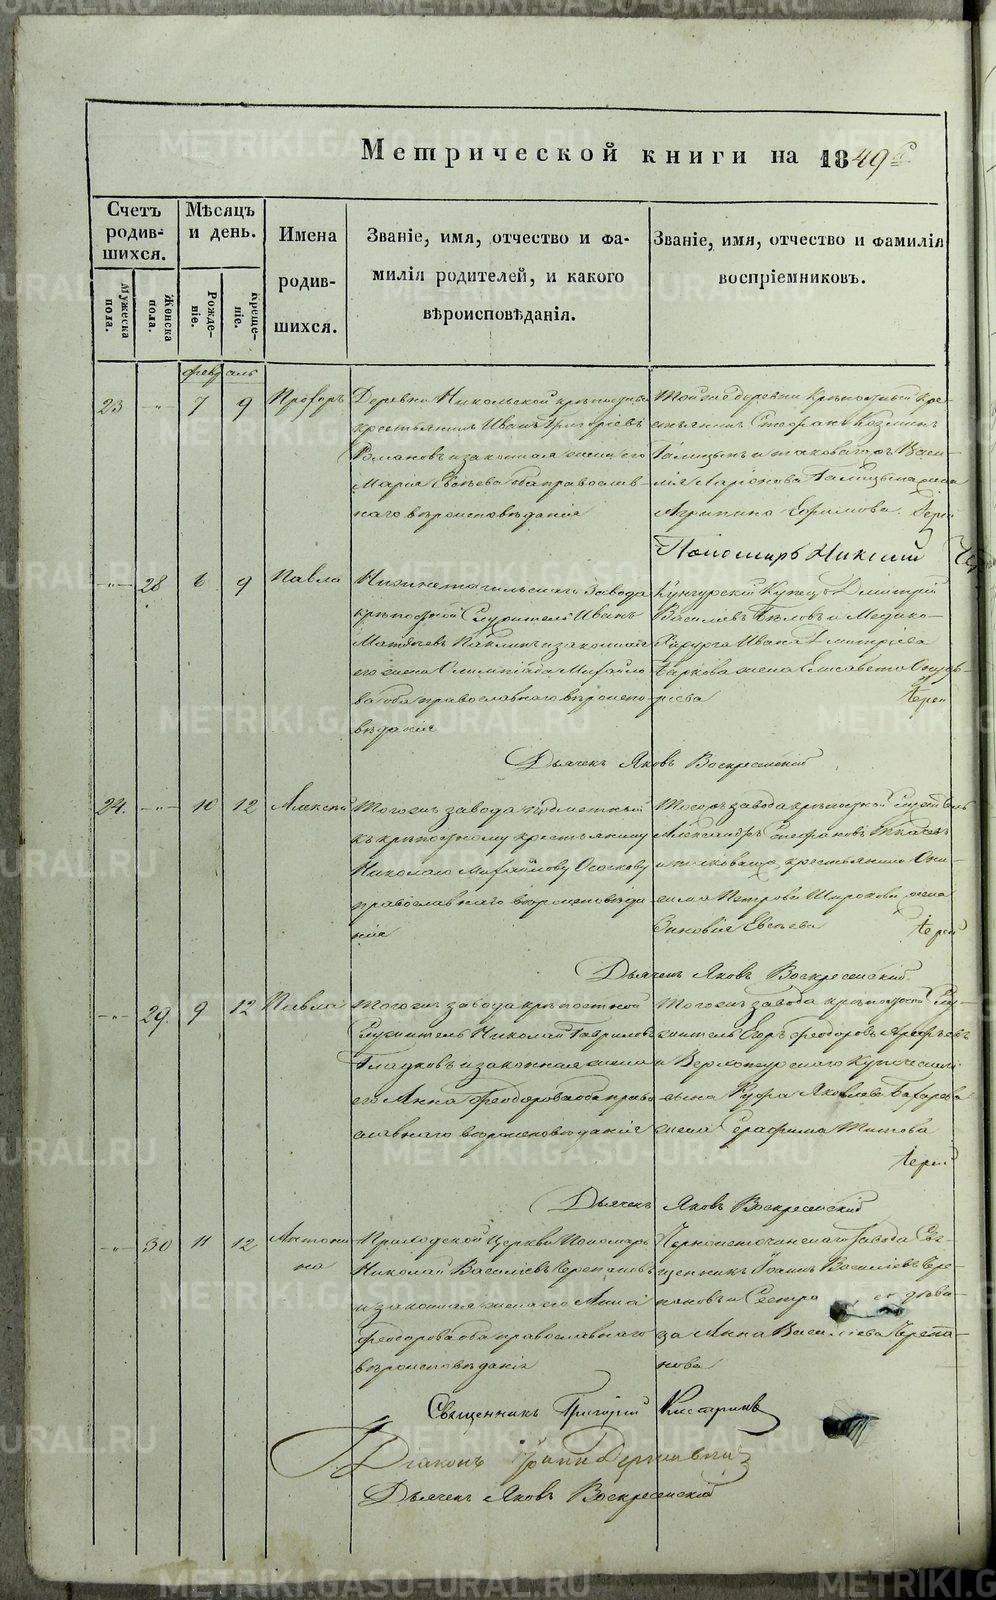 Метрической книги на 1849 г.
Счетъ родив-шихся.
Мѣсяцъ и день.
Имена родив-шихся.
Званіе, имя, отчество и фа-
милія родителей, и какого
вѣроисповѣданія.
Званіе, имя, отчество и фамилія
воспріемниковъ.
Мужеска пола.
Женска пола.
Рожде-ніе.
Креще-ніе.
февраль
23 -"- 7 9
Деревни Никольской крѣпостный
крестьянинъ Иванъ Григоріевъ
Романовъ и законная жена его
Марія Евсѣева оба православ-
наго вѣроисповѣданія
Той же деревни крѣпостный кре-
стьянинъ Стефанъ Козминъ
Галицынъ и таковаго жъ Васи-
лія Ларіонова Галицына жена
Агрипина Ефимова. Іерей
Пономарь Никола
-"- 28 6 9 Павла
Нижнетагильскаго Завода
крѣпостной Служитель Иванъ
Матвѣевъ и законная
его жена Олимпіада Михайло-
ва оба православнаго вѣроиспо-
вѣданія
Кунгурскій Купецъ Димитрій
Василіевъ Бѣловъ и Медико-
Хирурга Ивана Димитріева
жена Елисавета
Іерей
Дьячекъ Яковъ Воскресенскій
24. -"- 10 12 Алексѣй
Тогожъ завода подметный
къ крѣпостному крестьянину
Николаю Михайлову Осокову
православнаго вѣроисповѣда-
нія
Тогожъ завода крѣпостной Служитель
Александръ Стефановъ
и таковаго жъ крестьянина Они-
сима Петрова Широкова жена
Зиновія Евсѣева Іерей
Дьячекъ Яковъ Воскресенскій
-"- 29. 9 12 Павла
Тогожъ завода крѣпостной
Служитель Николай Гавриловъ
Гладковъ и законная жена
его Анна Феодорова оба право-
славнаго вѣроисповѣданія
Тогожъ завода крѣпостной Слу-
житель Егоръ Феодоровъ Арефьевъ
и Верхотурскаго Купеческаго
сына Яковлева
жена Серафима Титова
Іерей
Дьячекъ Яковъ Воскресенскій
-"- 30 11 12 Антони-
на
Приходской Церкви Пономарь
Николай Василіевъ Черепановъ
и законная жена его Анна
Феодорова оба православнаго
вѣроисповѣданія
Черноисточинскаго Завода Свя-
щенникъ Іоаннъ Василіевъ Чере-
пановъ и Сестра дѣви-
ца Анна Василіева Черепа-
нова
Священникъ Григорій
Діаконъ Іоаннъ
Дьячекъ Яковъ Воскресенскій
METRIKI.GASO-URAL.RU